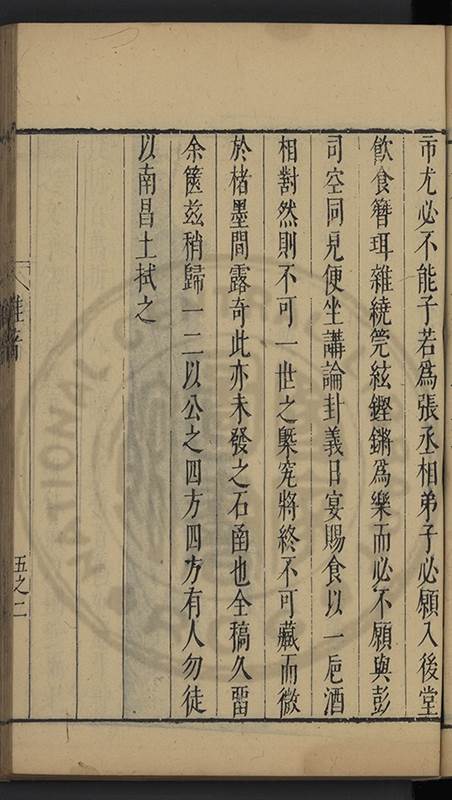 市尤必不能子若爲張丞相弟子必願入後堂
飲食簪珥雜繞筦絃鏗鏘爲樂而必不願與彭
司空同見便坐講論封義日宴賜食以一卮酒
相對然則不可一世之槩究將終不可藏而微
於楮墨間露奇此亦未發之石函也全稿久留
余篋玆稍歸一二以公之四方四方有人勿徒
以南昌土拭之
雜著
五之二